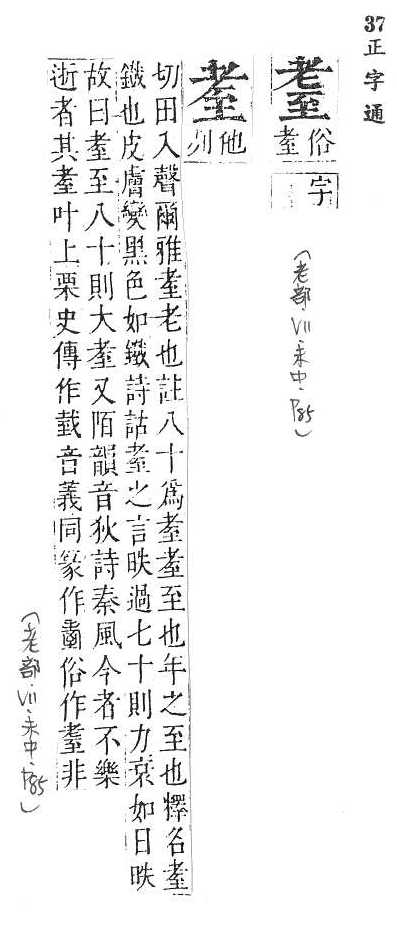 37 正字通
耋俗耊字
（老部．VII．未中．P85）
耊他列
切田入聲爾雅耊老也註八十爲耊耊至也年之至也釋名耊
鐵也皮膚變黑色如鐵詩詁耊之言昳過七十則力衰如日昳
故曰耊至八十則大耊又陌韻音狄詩秦風今者不樂
逝者其耊叶上栗史傳作臷音義同篆作俗作耋非
（老部．VII．未中．P85）